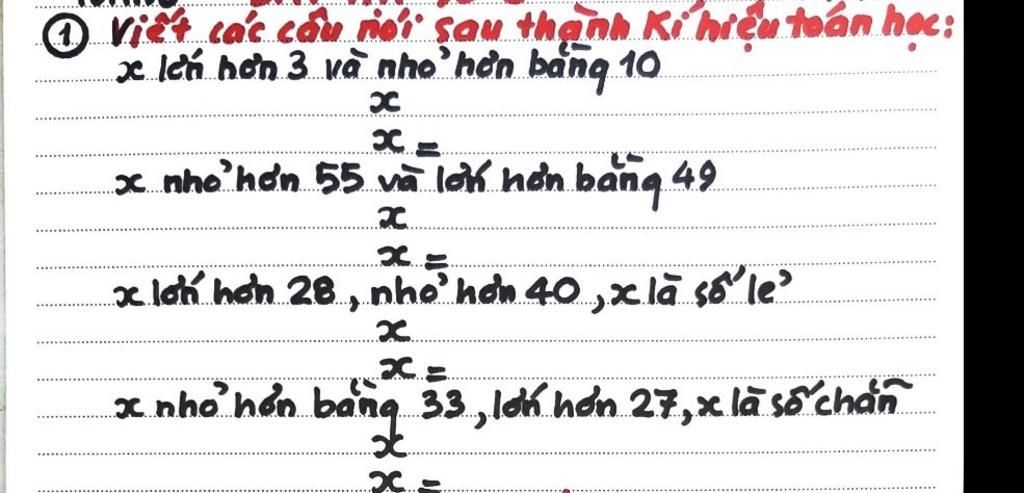 ① Viết các câu nói sau thành Kí hiệu toán học:
x lớn hơn 3 và nhỏ hơn bằng 10
x
x =
x nhỏ hơn 55 và lớn hơn bằng 49
x
x =
x lớn hơn 28, nhỏ hơn 40, x là số lẻ
x
x =
x nhỏ hơn bằng 33, lớn hơn 27, x là số chẵn
x
x =